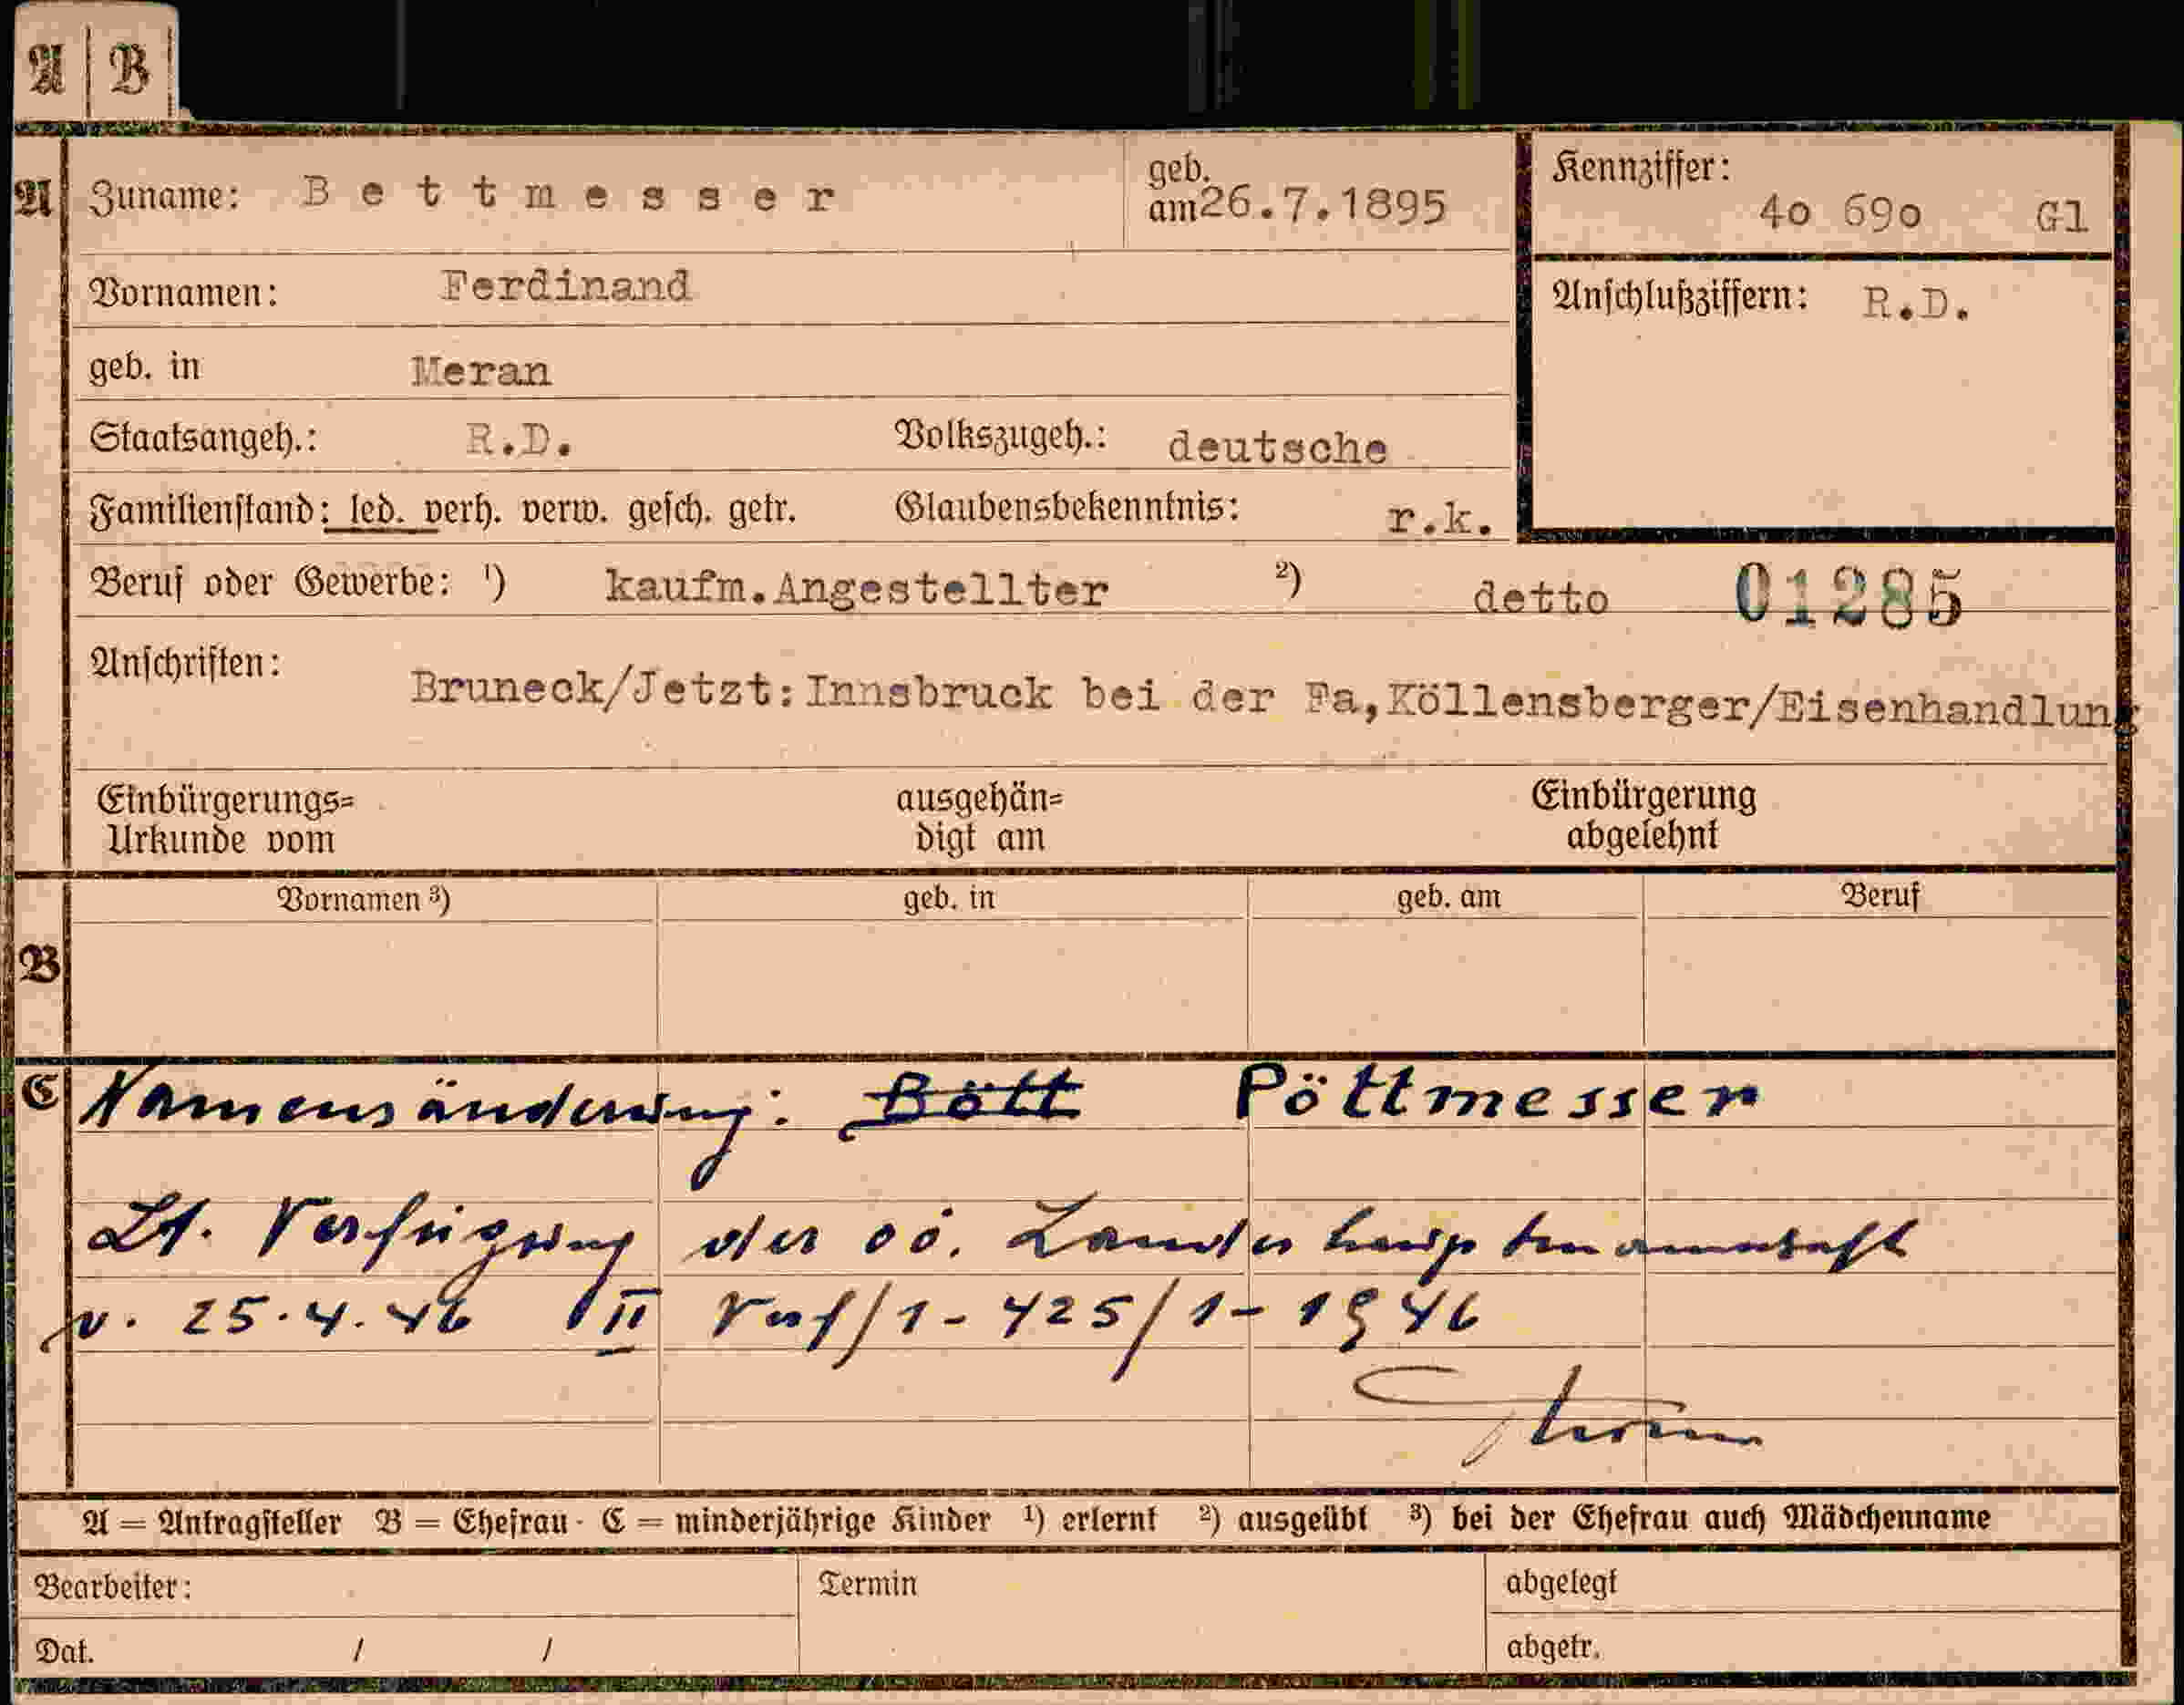 A | B
A Zuname: Bettmesser geb. am 26.7.1895 Kennziffer: 4o 69o Gl
Vornamen: Ferdinand Anschlußziffern: R.D.
geb. in Meran
Staatsangeh.: R.D. Volkszugeh.: deutsche
Familienstand: led. verh. verw. gesch. getr. Glaubensbekenntnis: r.k.
Beruf oder Gewerbe: ¹) kaufm.Angestellter ²) detto 01285
Anschriften: Bruneck/Jetzt:Innsbruck bei der Fa,Köllensberger/Eisenhandlung
Einbürgerungs= Urkunde vom ausgehän= digt am Einbürgerung abgelehnt
Vornamen ³) geb. in geb. am Beruf
B
C Namensänderung: Bött Pöttmesser
Lt. Verfügung der oö. Landeshauptmannschaft
v. 25.4.46 II Verf/1-425/1-1946
A = Antragsteller B = Ehefrau · C = minderjährige Kinder ¹) erlernt ²) ausgeübt ³) bei der Ehefrau auch Mädchenname
Bearbeiter: Termin abgelegt
Dat. / / abgetr.